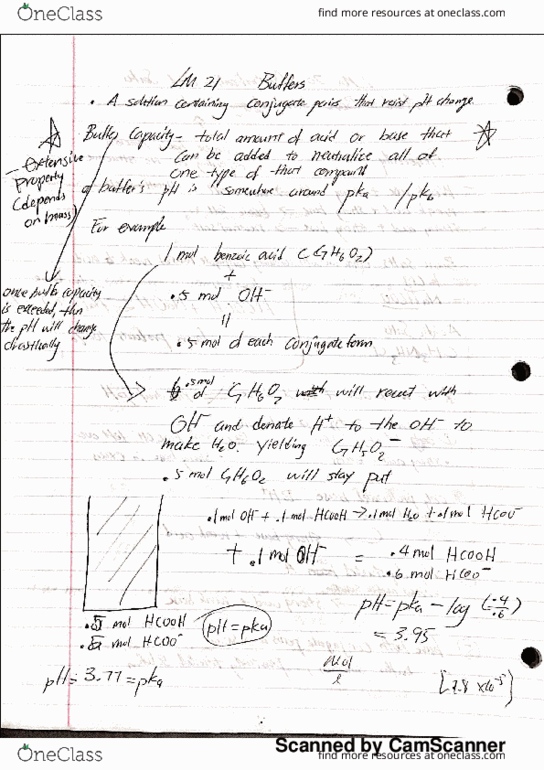 OneClass
find more resources at oneclass.com
LM 21 Buffers
• A solution containing conjugate pairs that resist pH change
Buffer Capacity - total amount of acid or base that
can be added to neutralize all of
one type of that compound
- extensive
Property
(depends
on mass)
a buffer's pH is somewhere around pka /pkb
For example
1 mol benzoic acid (C7H6O2)
+
.5 mol OH-
||
.5 mol of each conjugate form
once buffer capacity
is exceeded, then
the pH will change
drastically
.5mol of C7H6O2 will react with
OH- and donate H+ to the OH- to
make H2O. yielding C7H5O2-
.5 mol C7H6O2 will stay put
.1mol OH- + .1mol HCOOH → .1mol H2O + .1mol HCOO-
+ .1mol OH- = .4 mol HCOOH
.6 mol HCOO-
.5 mol HCOOH
.5 mol HCOO-
pH=pka
pH = 3.77 = pka
pH = pka - log (.4/.6)
= 3.95
mol
l
[1.8 x10-5]
Scanned by CamScanner
OneClass
find more resources at oneclass.com